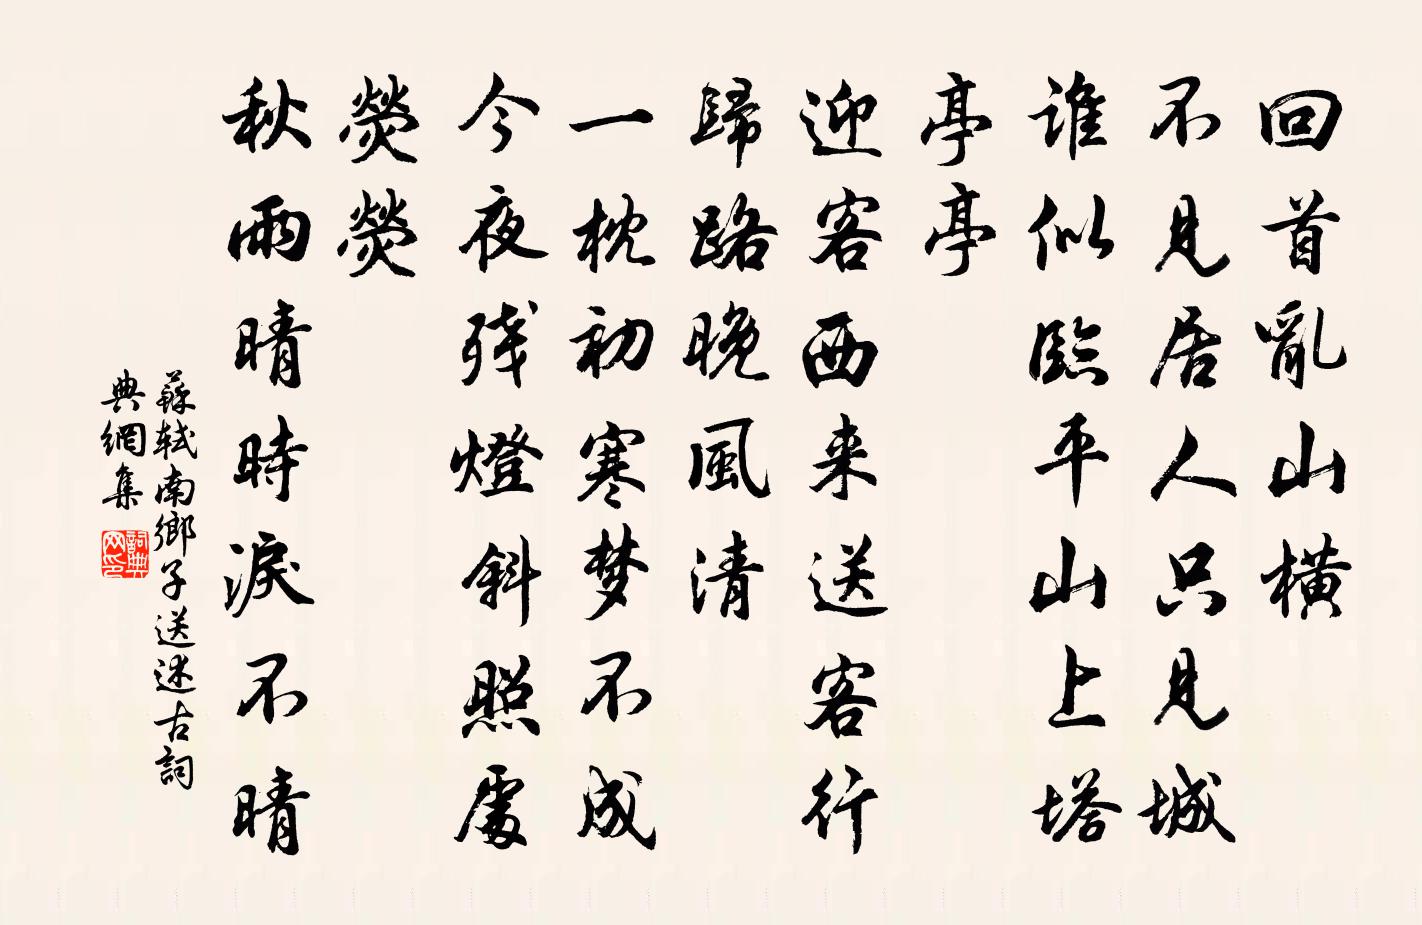 回首亂山橫
不見居人只見城
谁似臨平山上塔
亭亭
迎客西来送客行
歸路晚風清
一枕初寒梦不成
今夜残燈斜照處
熒熒
秋雨晴時淚不晴
蘇軾南鄉子送述古詞
典網集
詞典
网印